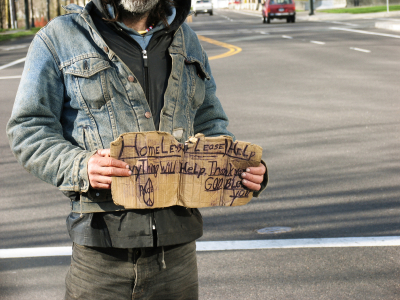 HOMELESS PLEASE HELP
AnyThing will Help. Thank you
GOD Bless
you